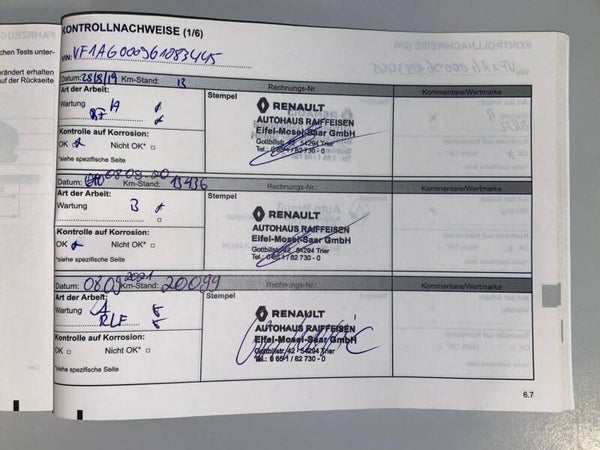 KONTROLLNACHWEISE (1/6)
VIN: VF1AG000961083445
Datum: 28/8/19 Km-Stand: 13 Rechnungs-Nr.: Kommentare/Wertmarke
Art der Arbeit: Stempel
Wartung A
RENAULT
AUTOHAUS RAIFFEISEN
Eifel-Mosel-Saar GmbH
Gottbillstr. 42 · 54294 Trier
Tel.: 0 65 1 / 82 730 - 0
Kontrolle auf Korrosion:
OK Nicht OK* □
*siehe spezifische Seite
Datum: 08.09.20 Km-Stand: 13436 Rechnungs-Nr.: Kommentare/Wertmarke
Art der Arbeit: Stempel
Wartung B
RENAULT
AUTOHAUS RAIFFEISEN
Eifel-Mosel-Saar GmbH
Gottbillstr. 42 · 54294 Trier
Tel.: 0 65 1 / 82 730 - 0
Kontrolle auf Korrosion:
OK Nicht OK* □
*siehe spezifische Seite
Datum: 08.09.2021 Km-Stand: 20099 Rechnungs-Nr.: Kommentare/Wertmarke
Art der Arbeit: Stempel
Wartung A
RLF
RENAULT
AUTOHAUS RAIFFEISEN
Eifel-Mosel-Saar GmbH
Gottbillstr. 42 · 54294 Trier
Tel.: 0 65 1 / 82 730 - 0
Kontrolle auf Korrosion:
OK □ Nicht OK* □
*siehe spezifische Seite
6.7
chen Tests unter-
erändert erhalten
auf der Rückseite